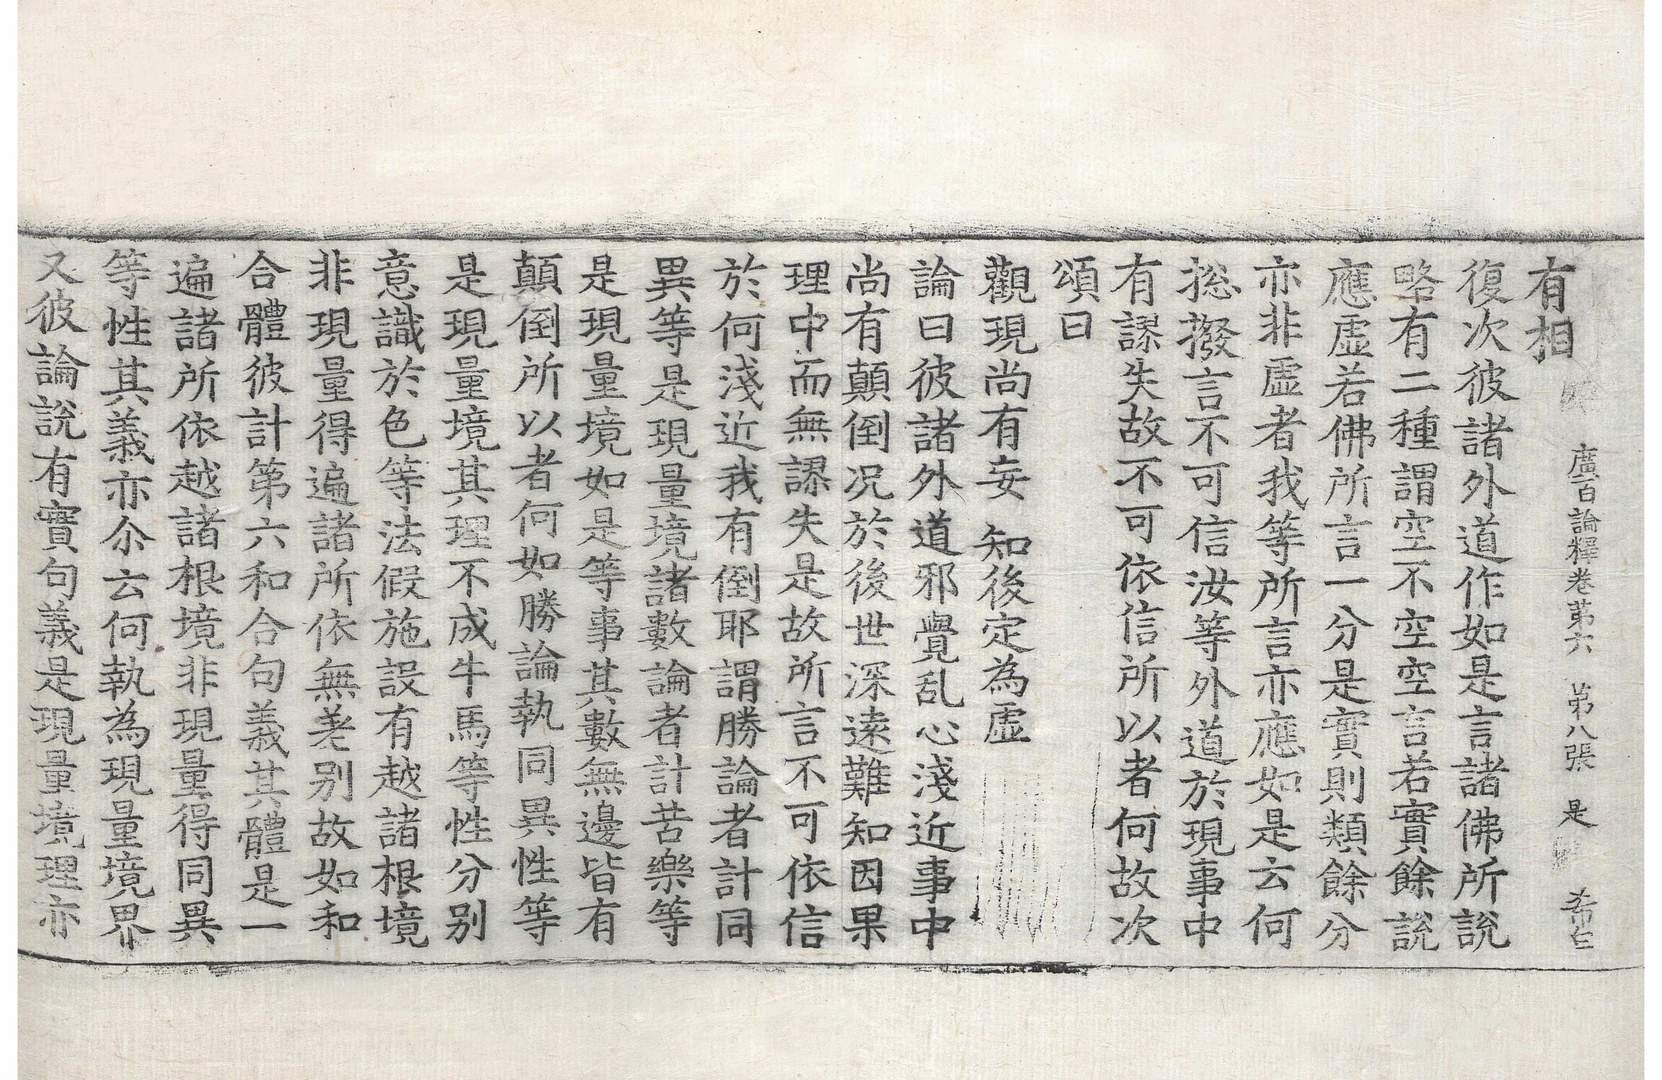 廣百論釋卷第六　第八張　是　希仁
有相
復次彼諸外道作如是言諸佛所說
略有二種謂空不空空言若實餘說
應虛若佛所言一分是實則類餘分
亦非虛者我等所言亦應如是云何
揔撥言不可信汝等外道於現事中
有謬失故不可依信所以者何故次
頌曰
觀現尚有妄　知後定為虛
論曰彼諸外道邪覺乱心淺近事中
尚有顛倒况於後世深遠難知因果
理中而無謬失是故所言不可依信
於何淺近我有倒耶謂勝論者計同
異等是現量境諸數論者計苦樂等
是現量境如是等事其數無邊皆有
顛倒所以者何如勝論執同異性等
是現量境其理不成牛馬等性分別
意識於色等法假施設有越諸根境
非現量得遍諸所依無差別故如和
合體彼計第六和合句義其體是一
遍諸所依越諸根境非現量得同異
等性其義亦尒云何執為現量境界
又彼論說有實句義是現量境理亦